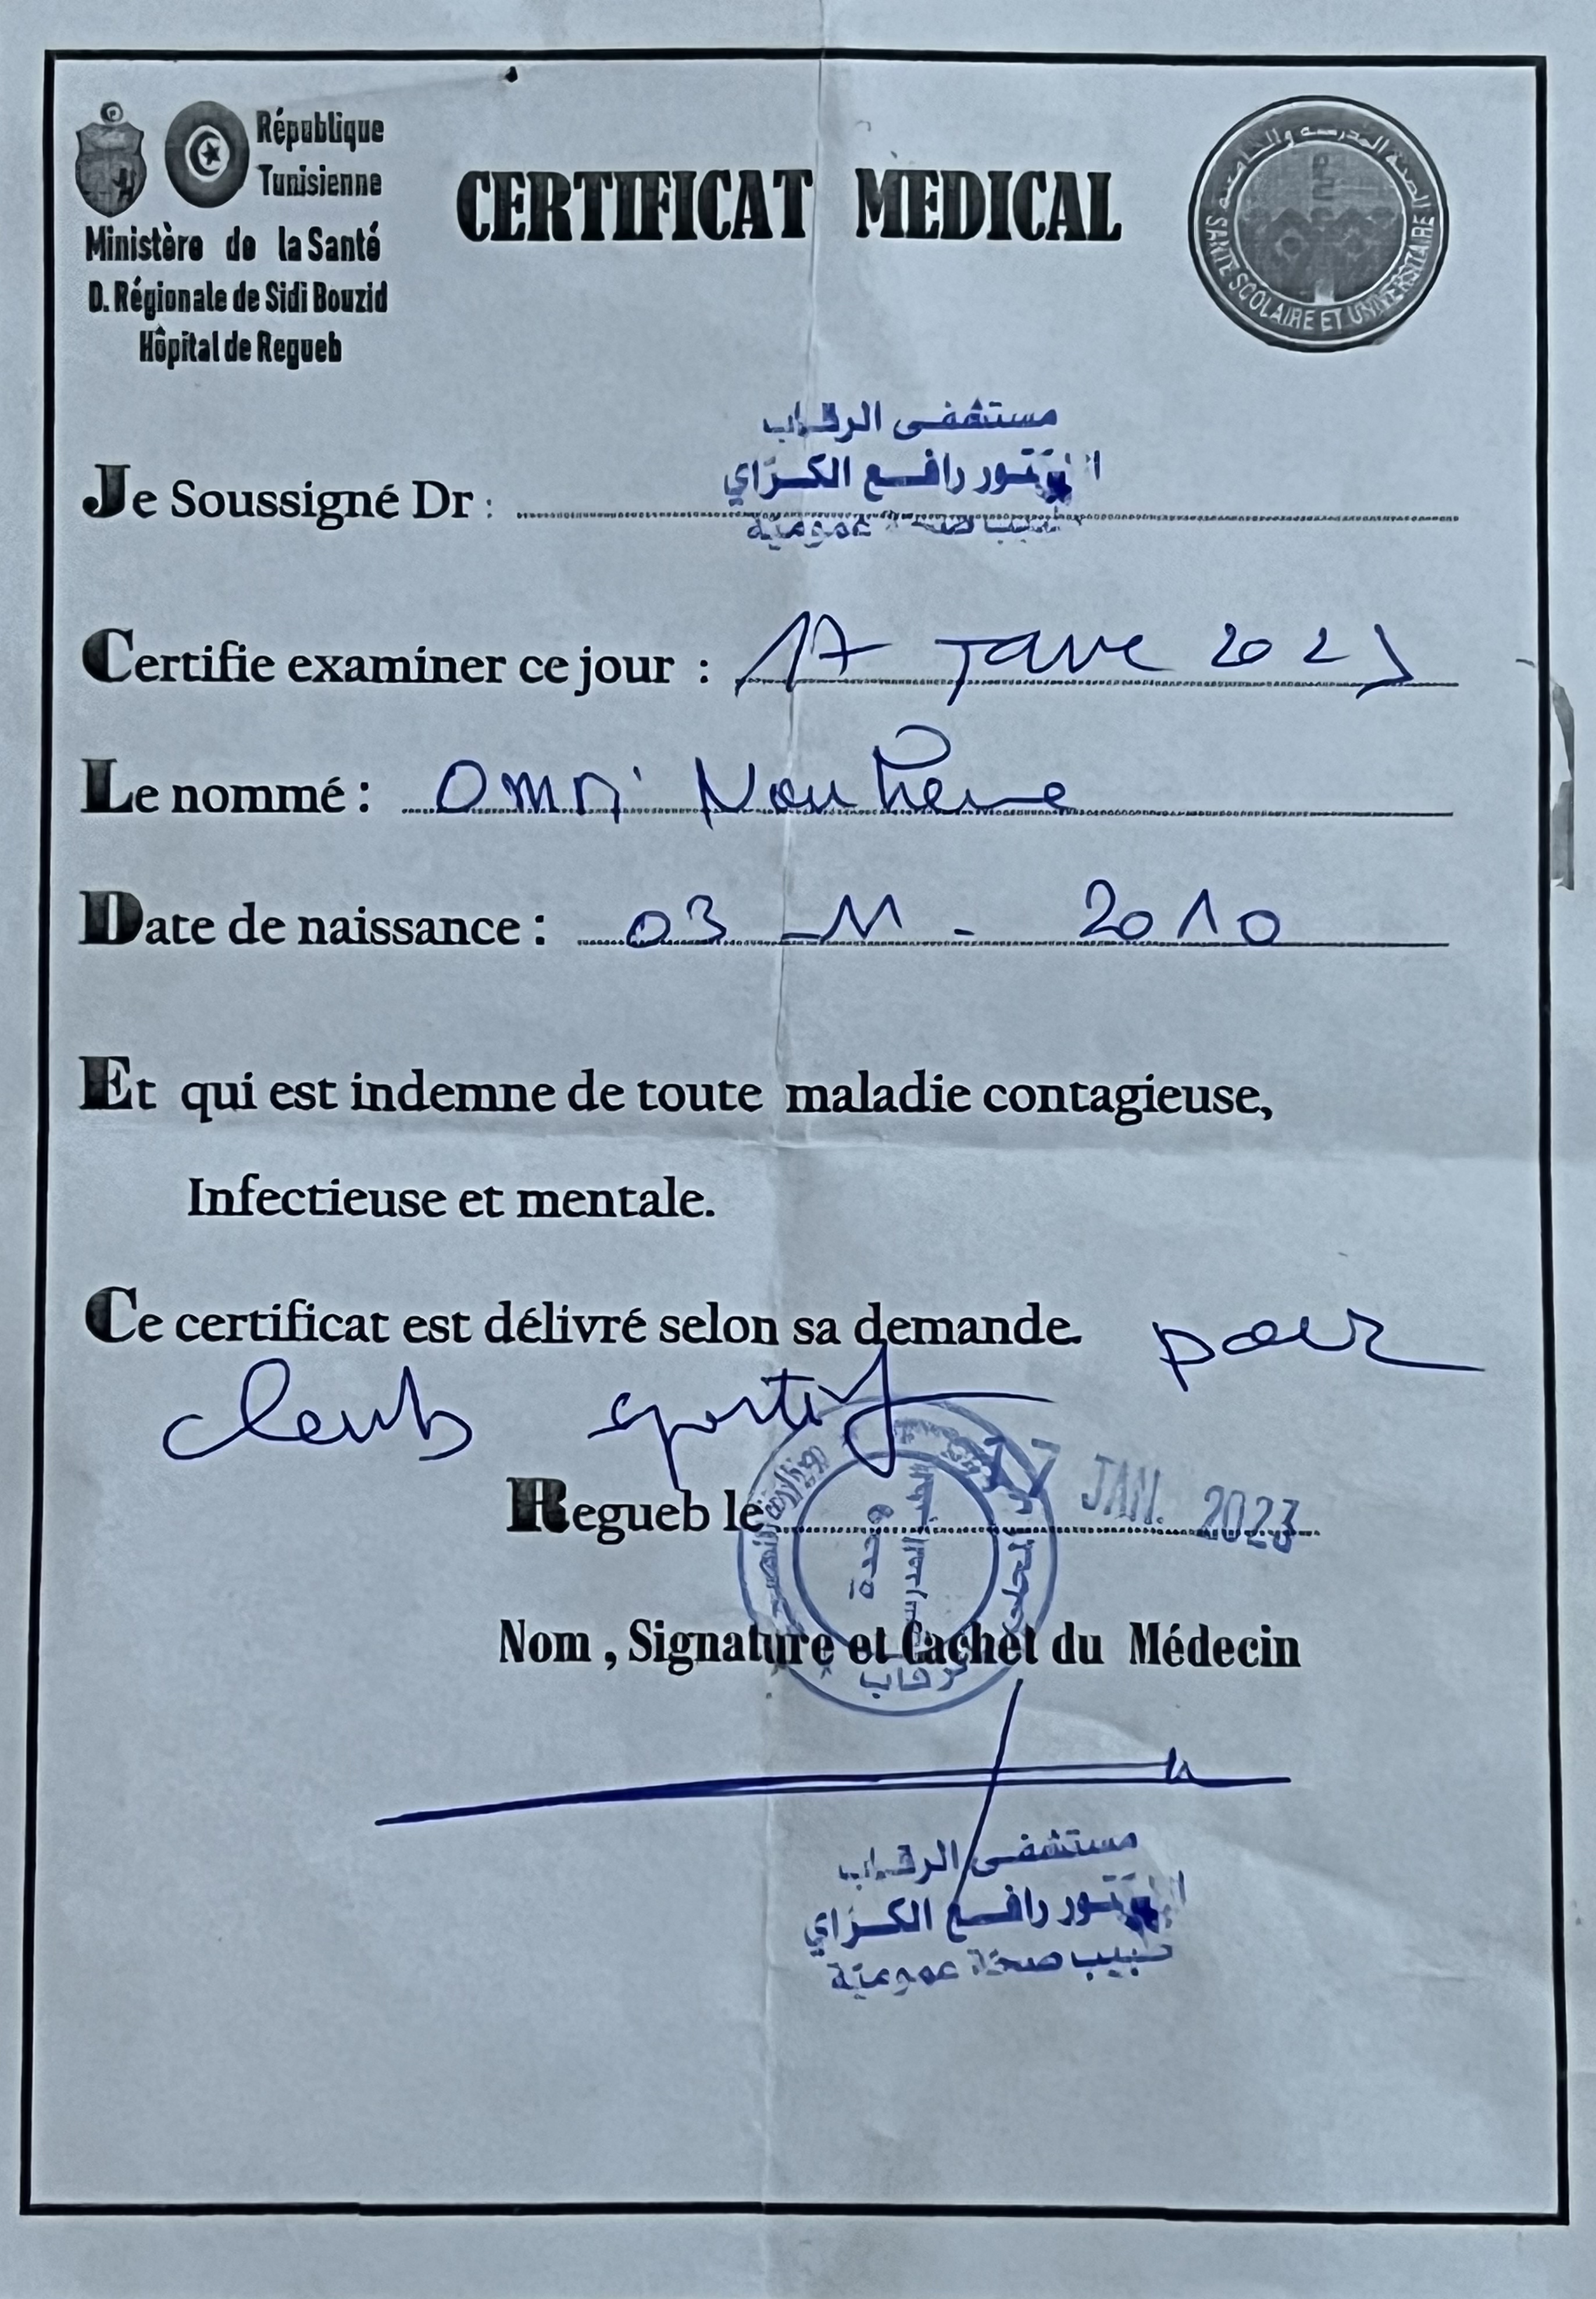 République
Tunisienne
Ministère de la Santé
D. Régionale de Sidi Bouzid
Hôpital de Regueb
CERTIFICAT MEDICAL
SANTE SCOLAIRE ET UNIVERSITAIRE
مستشفى الرقاب
رافع الكراي
Je Soussigné Dr :
صحة عمومية
Certifie examiner ce jour : 17 Janv 2023
Le nommé : Omri
Date de naissance : 03 - 11 - 2010
Et qui est indemne de toute maladie contagieuse,
Infectieuse et mentale.
Ce certificat est délivré selon sa demande. pour
club sportif
Regueb le 17 JAN. 2023
Nom , Signature et Cachet du Médecin
مستشفى الرقاب
رافع الكراي
طبيب صحة عمومية